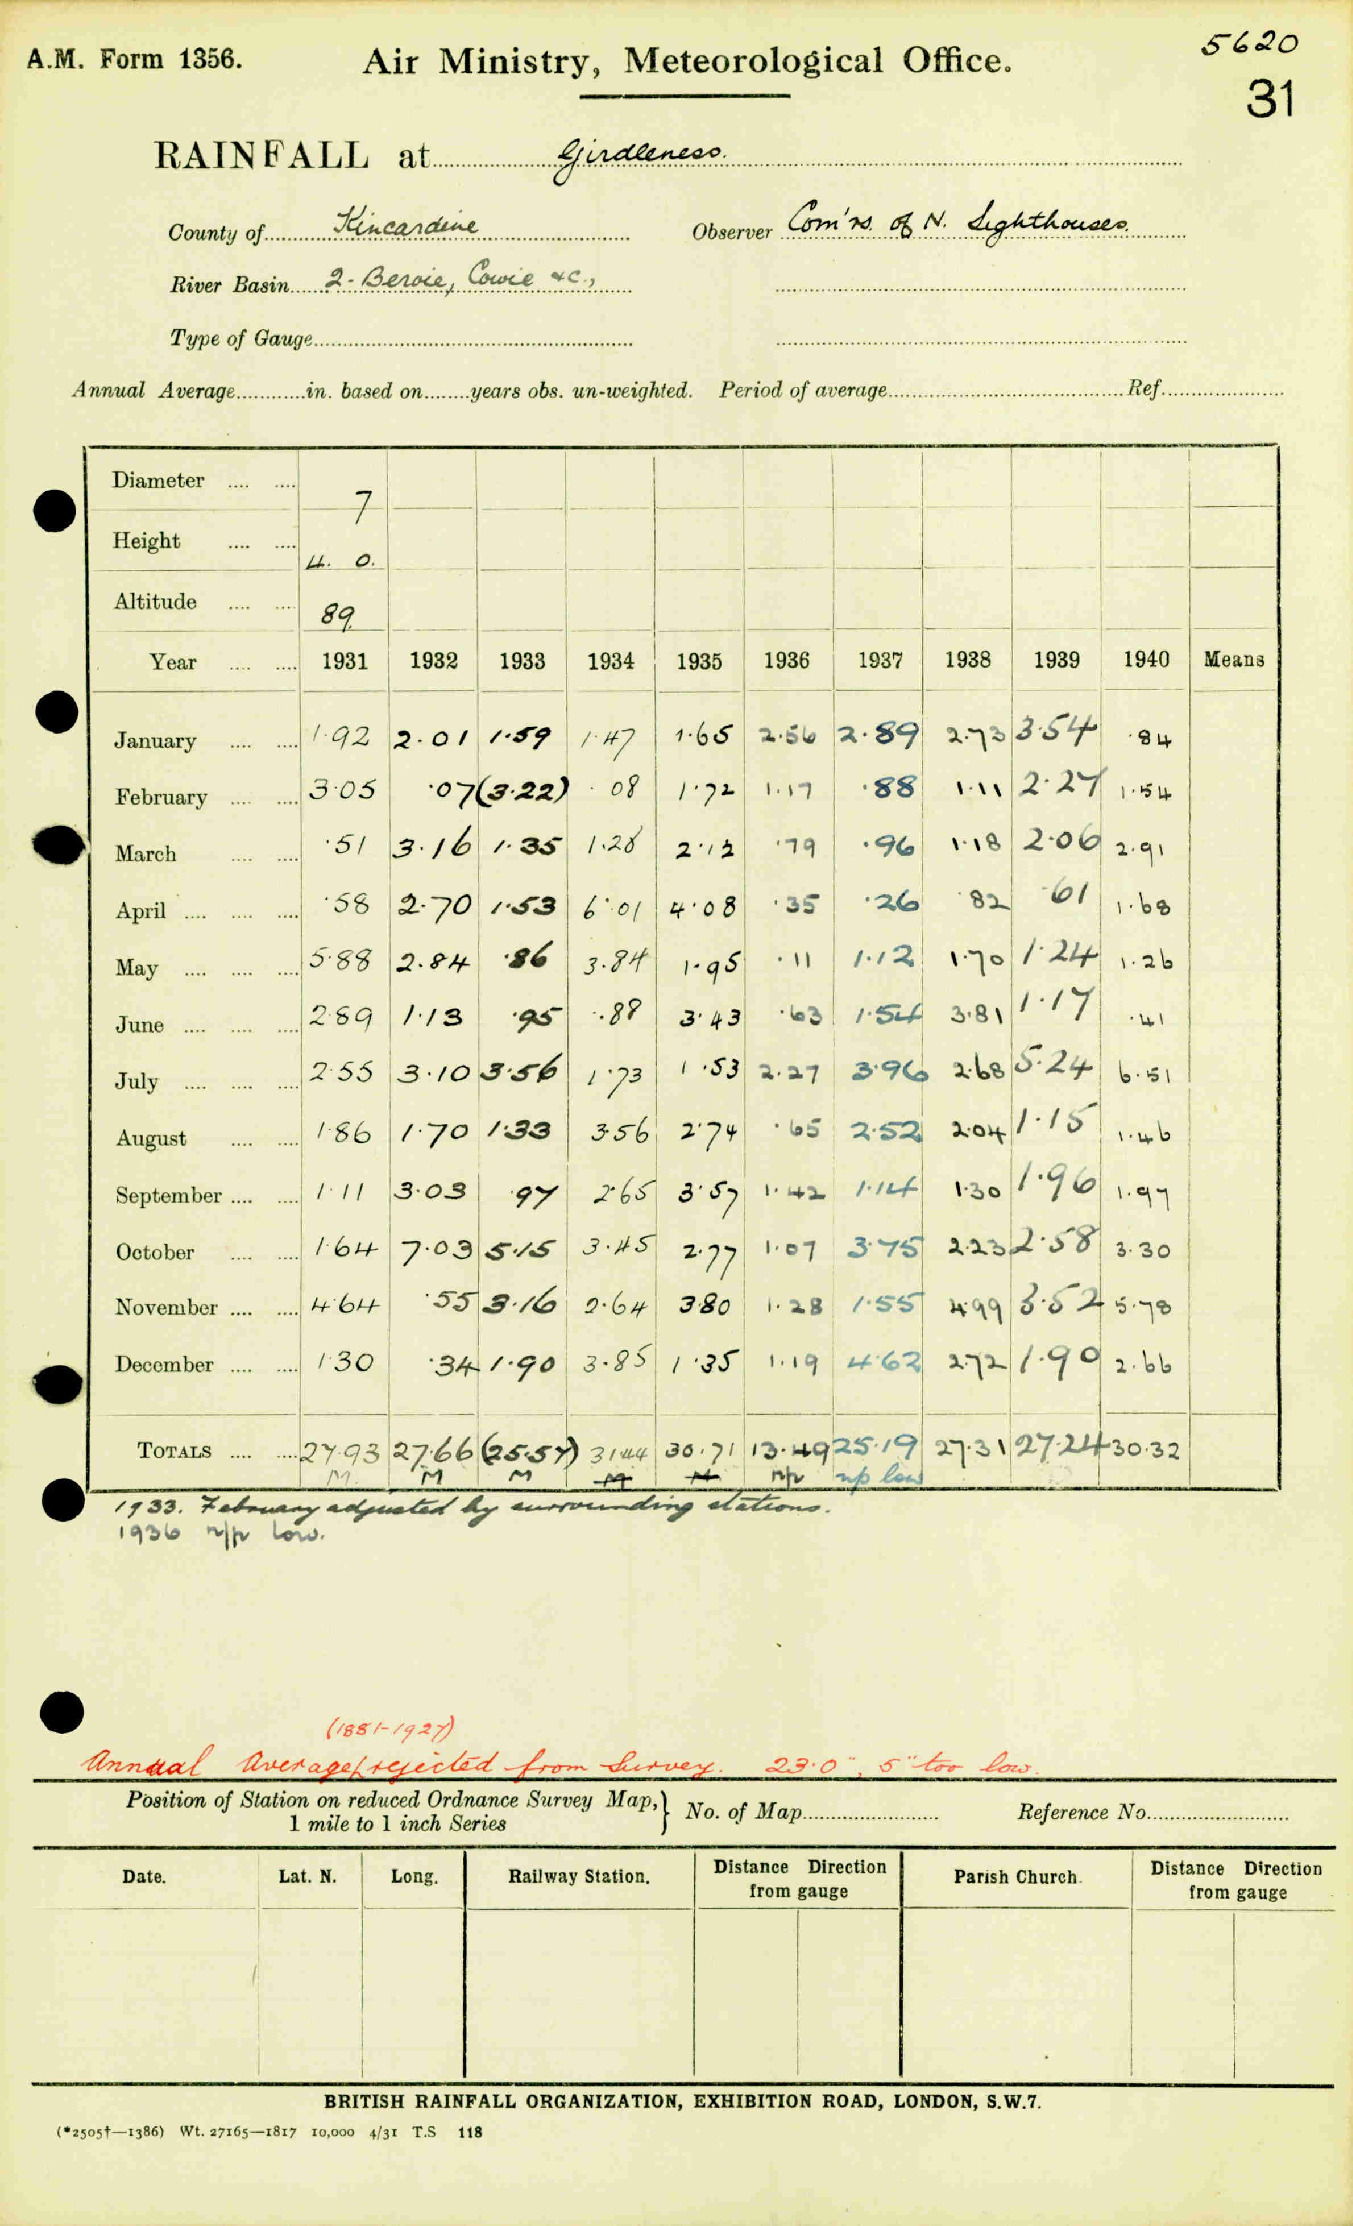 A.M. Form 1356.
Air Ministry, Meteorological Office.
5620
31
RAINFALL at Girdleness.
County of Kincardine Observer Com'rs. of N. Lighthouses.
River Basin 2. Bervie, Cowie &c.,
Type of Gauge
Annual Average in. based on years obs. un-weighted. Period of average Ref.
Diameter 7
Height 4. 0.
Altitude 89
Year 1931 1932 1933 1934 1935 1936 1937 1938 1939 1940 Means
January 1.92 2.01 1.59 1.47 1.65 2.56 2.89 2.73 3.54 .84
February 3.05 .07 (3.22) .08 1.72 1.17 .88 1.11 2.27 1.54
March .51 3.16 1.35 1.28 2.12 .79 .96 1.18 2.06 2.91
April .58 2.70 1.53 6.01 4.08 .35 .26 .82 .61 1.68
May 5.88 2.84 .86 3.84 1.95 .11 1.12 1.70 1.24 1.26
June 2.89 1.13 .95 .88 3.43 .63 1.54 3.81 1.17 .41
July 2.55 3.10 3.56 1.73 1.53 2.27 3.96 2.68 5.24 6.51
August 1.86 1.70 1.33 3.56 2.74 .65 2.52 2.04 1.15 1.46
September 1.11 3.03 .97 2.65 3.57 1.42 1.14 1.30 1.96 1.97
October 1.64 7.03 5.15 3.45 2.77 1.07 3.75 2.23 2.58 3.30
November 4.64 .55 3.16 2.64 3.80 1.28 1.55 4.99 3.52 5.78
December 1.30 .34 1.90 3.85 1.35 1.19 4.62 2.72 1.90 2.66
TOTALS 27.93 27.66 (25.57) 31.44 30.71 13.49 25.19 27.31 27.24 30.32
M M M M M n/p n/p low
1933. February adjusted by surrounding stations.
1936 n/p low.
(1881-1927)
Annual Average rejected from Survey. 23.0", 5" too low.
Position of Station on reduced Ordnance Survey Map, 1 mile to 1 inch Series } No. of Map Reference No.
Date. Lat. N. Long. Railway Station. Distance Direction from gauge Parish Church. Distance Direction from gauge
BRITISH RAINFALL ORGANIZATION, EXHIBITION ROAD, LONDON, S.W.7.
(*2505†—1386) Wt. 27165—1817 10,000 4/31 T.S 118